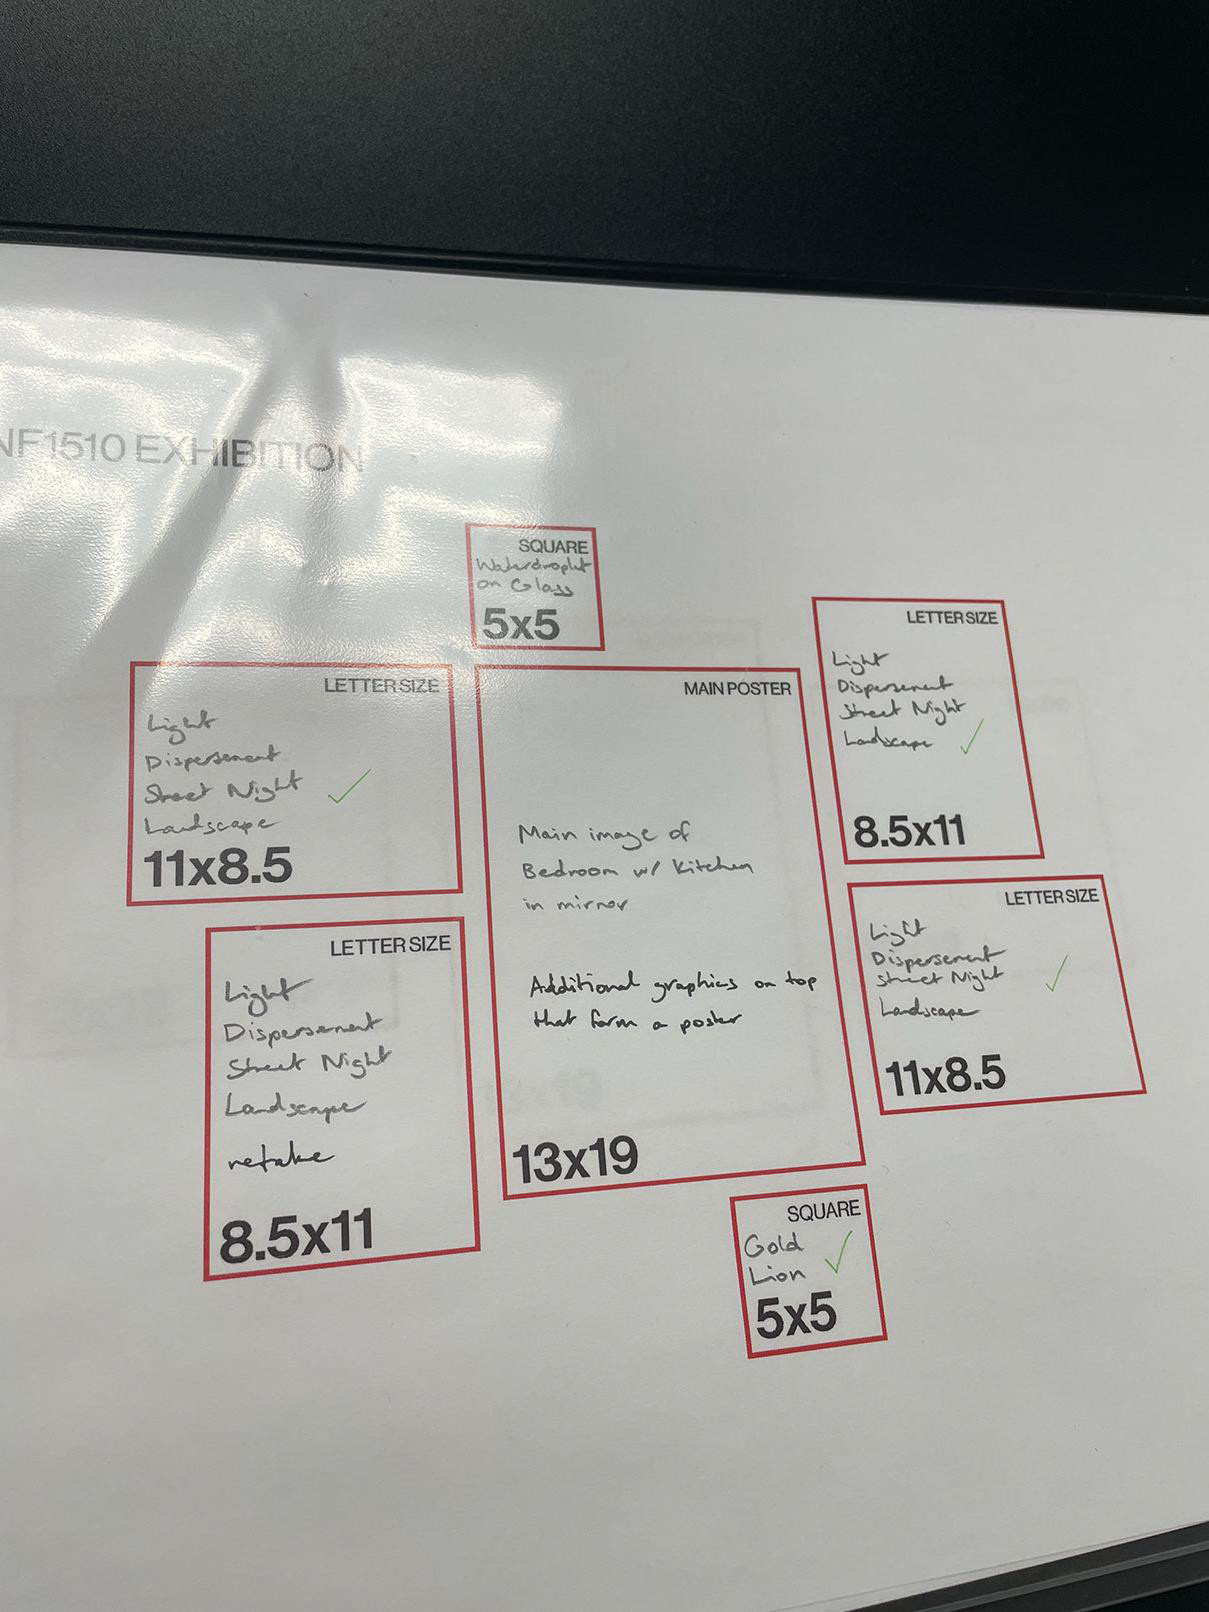 NF1510 EXHIBITION
SQUARE
Waterdroplet
on Glass
5x5
LETTER SIZE
Light
Dispersement
Street Night
Landscape
11x8.5
MAIN POSTER
Main image of
Bedroom w/ Kitchen
in mirror
Additional graphics on top
that form a poster
13x19
LETTER SIZE
Light
Dispersement
Street Night
Landscape
8.5x11
LETTER SIZE
Light
Dispersement
Street Night
Landscape
retake
8.5x11
LETTER SIZE
Light
Dispersement
Street Night
Landscape
11x8.5
SQUARE
Gold
Lion
5x5